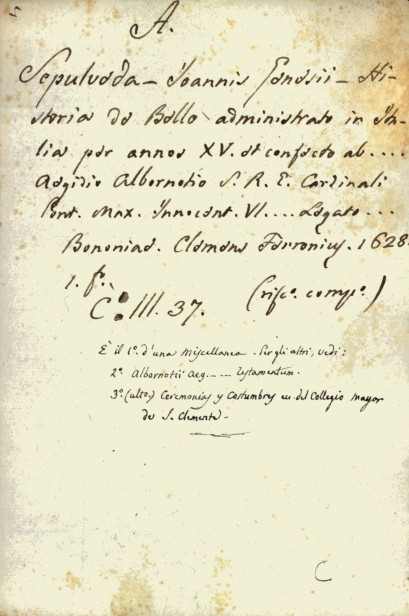 A.
Sepulveda – Joannis Genesii – Hi-
storia de Bello administrato in Ita-
lia per annos XV. et confecto ab ....
Aegidio Albernotio S. R. E. Cardinali
Pont. Max. Innocent. VI .... Legato ...
Bononiae. Clemens Ferronius. 1628.
1. f.º
C. III. 37. (risc.º comp.º)
È il 1.º d'una Miscellanea. Per gli altri, vedi:
2.º Albernotii Aeg. --- Testamentum.
3.º (ulto.) Ceremonias y Costumbres del Collegio Mayor
de S. Clemente –
C